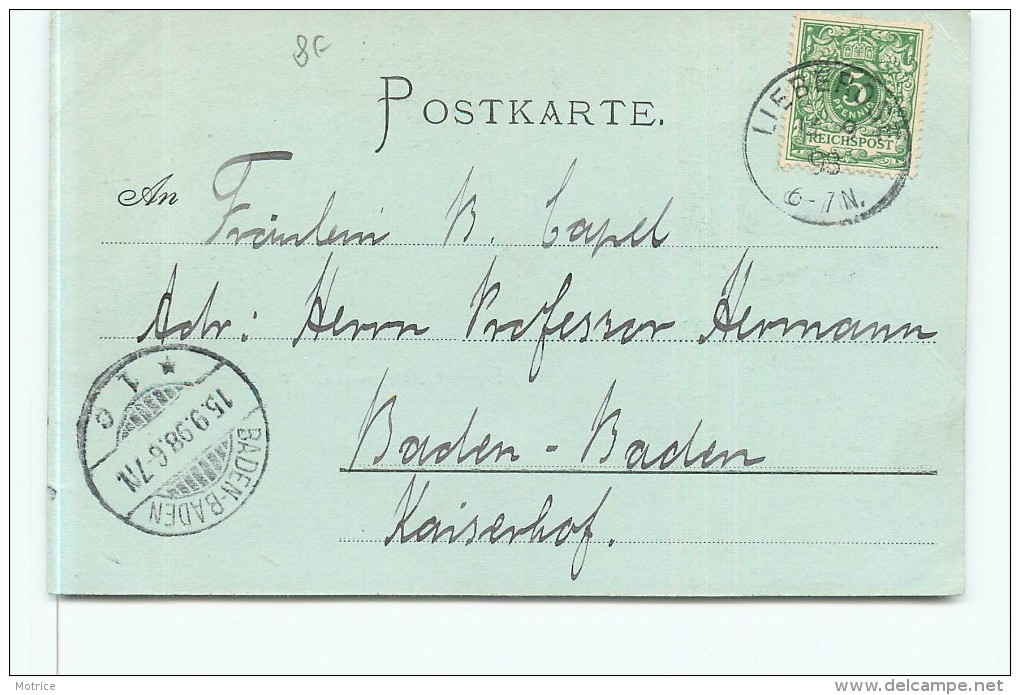 8F
POSTKARTE.
5
PFENNIG
REICHSPOST
98
6-7N.
An Fräulein B. Capel
Adr: Herrn Professor Hermann
Baden-Baden
Kaiserhof.
1 c
15.9.98.6-7N.
BADEN-BADEN
Motrice
delcampe.net